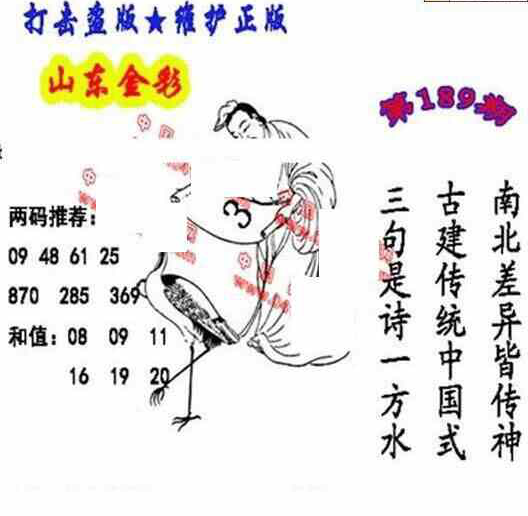 打击盗版★维护正版
山东金彩
第189期
两码推荐：
09 48 61 25
870 285 369
和值：08 09 11
16 19 20
3
南北差异皆传神
古建传统中国式
三句是诗一方水